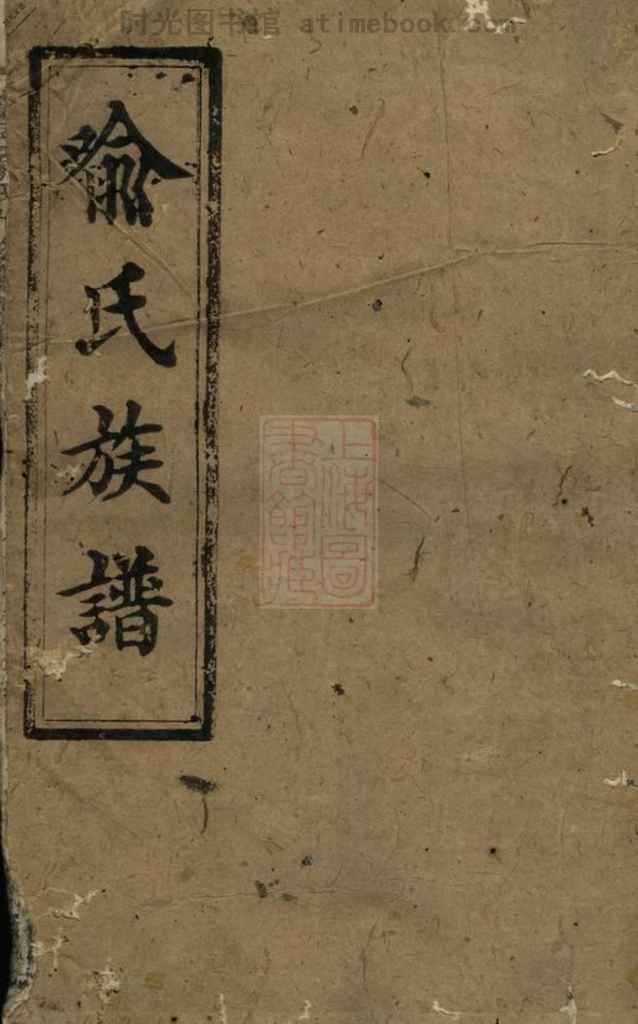 时光图书馆 atimebook.com
俞氏族譜
上海圖書館藏